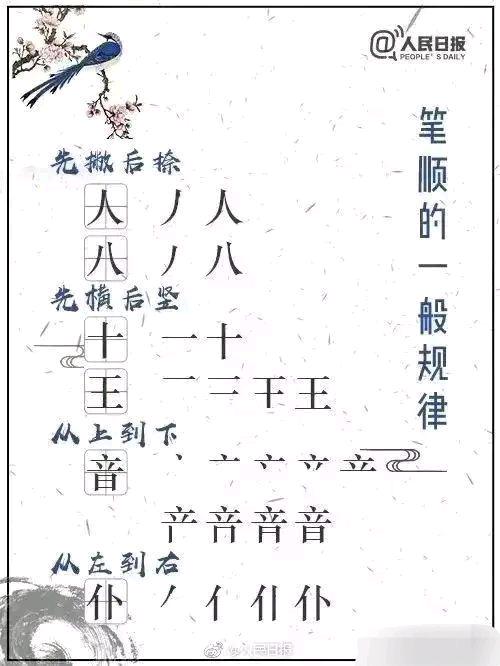 @人民日报
PEOPLE'S DAILY
笔顺的一般规律
先撇后捺
人 丿 人
八 丿 八
先横后竖
十 一 十
王 一 二 干 王
从上到下
音 丶 亠 立
音
从左到右
仆 丿 亻 仆
@人民日报